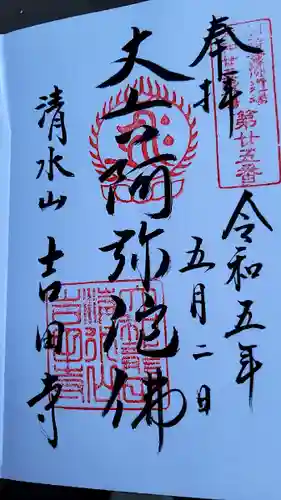 奉拝
第廿五番
令和五年
五月二日
丈六阿弥陀佛
清水山
吉田寺